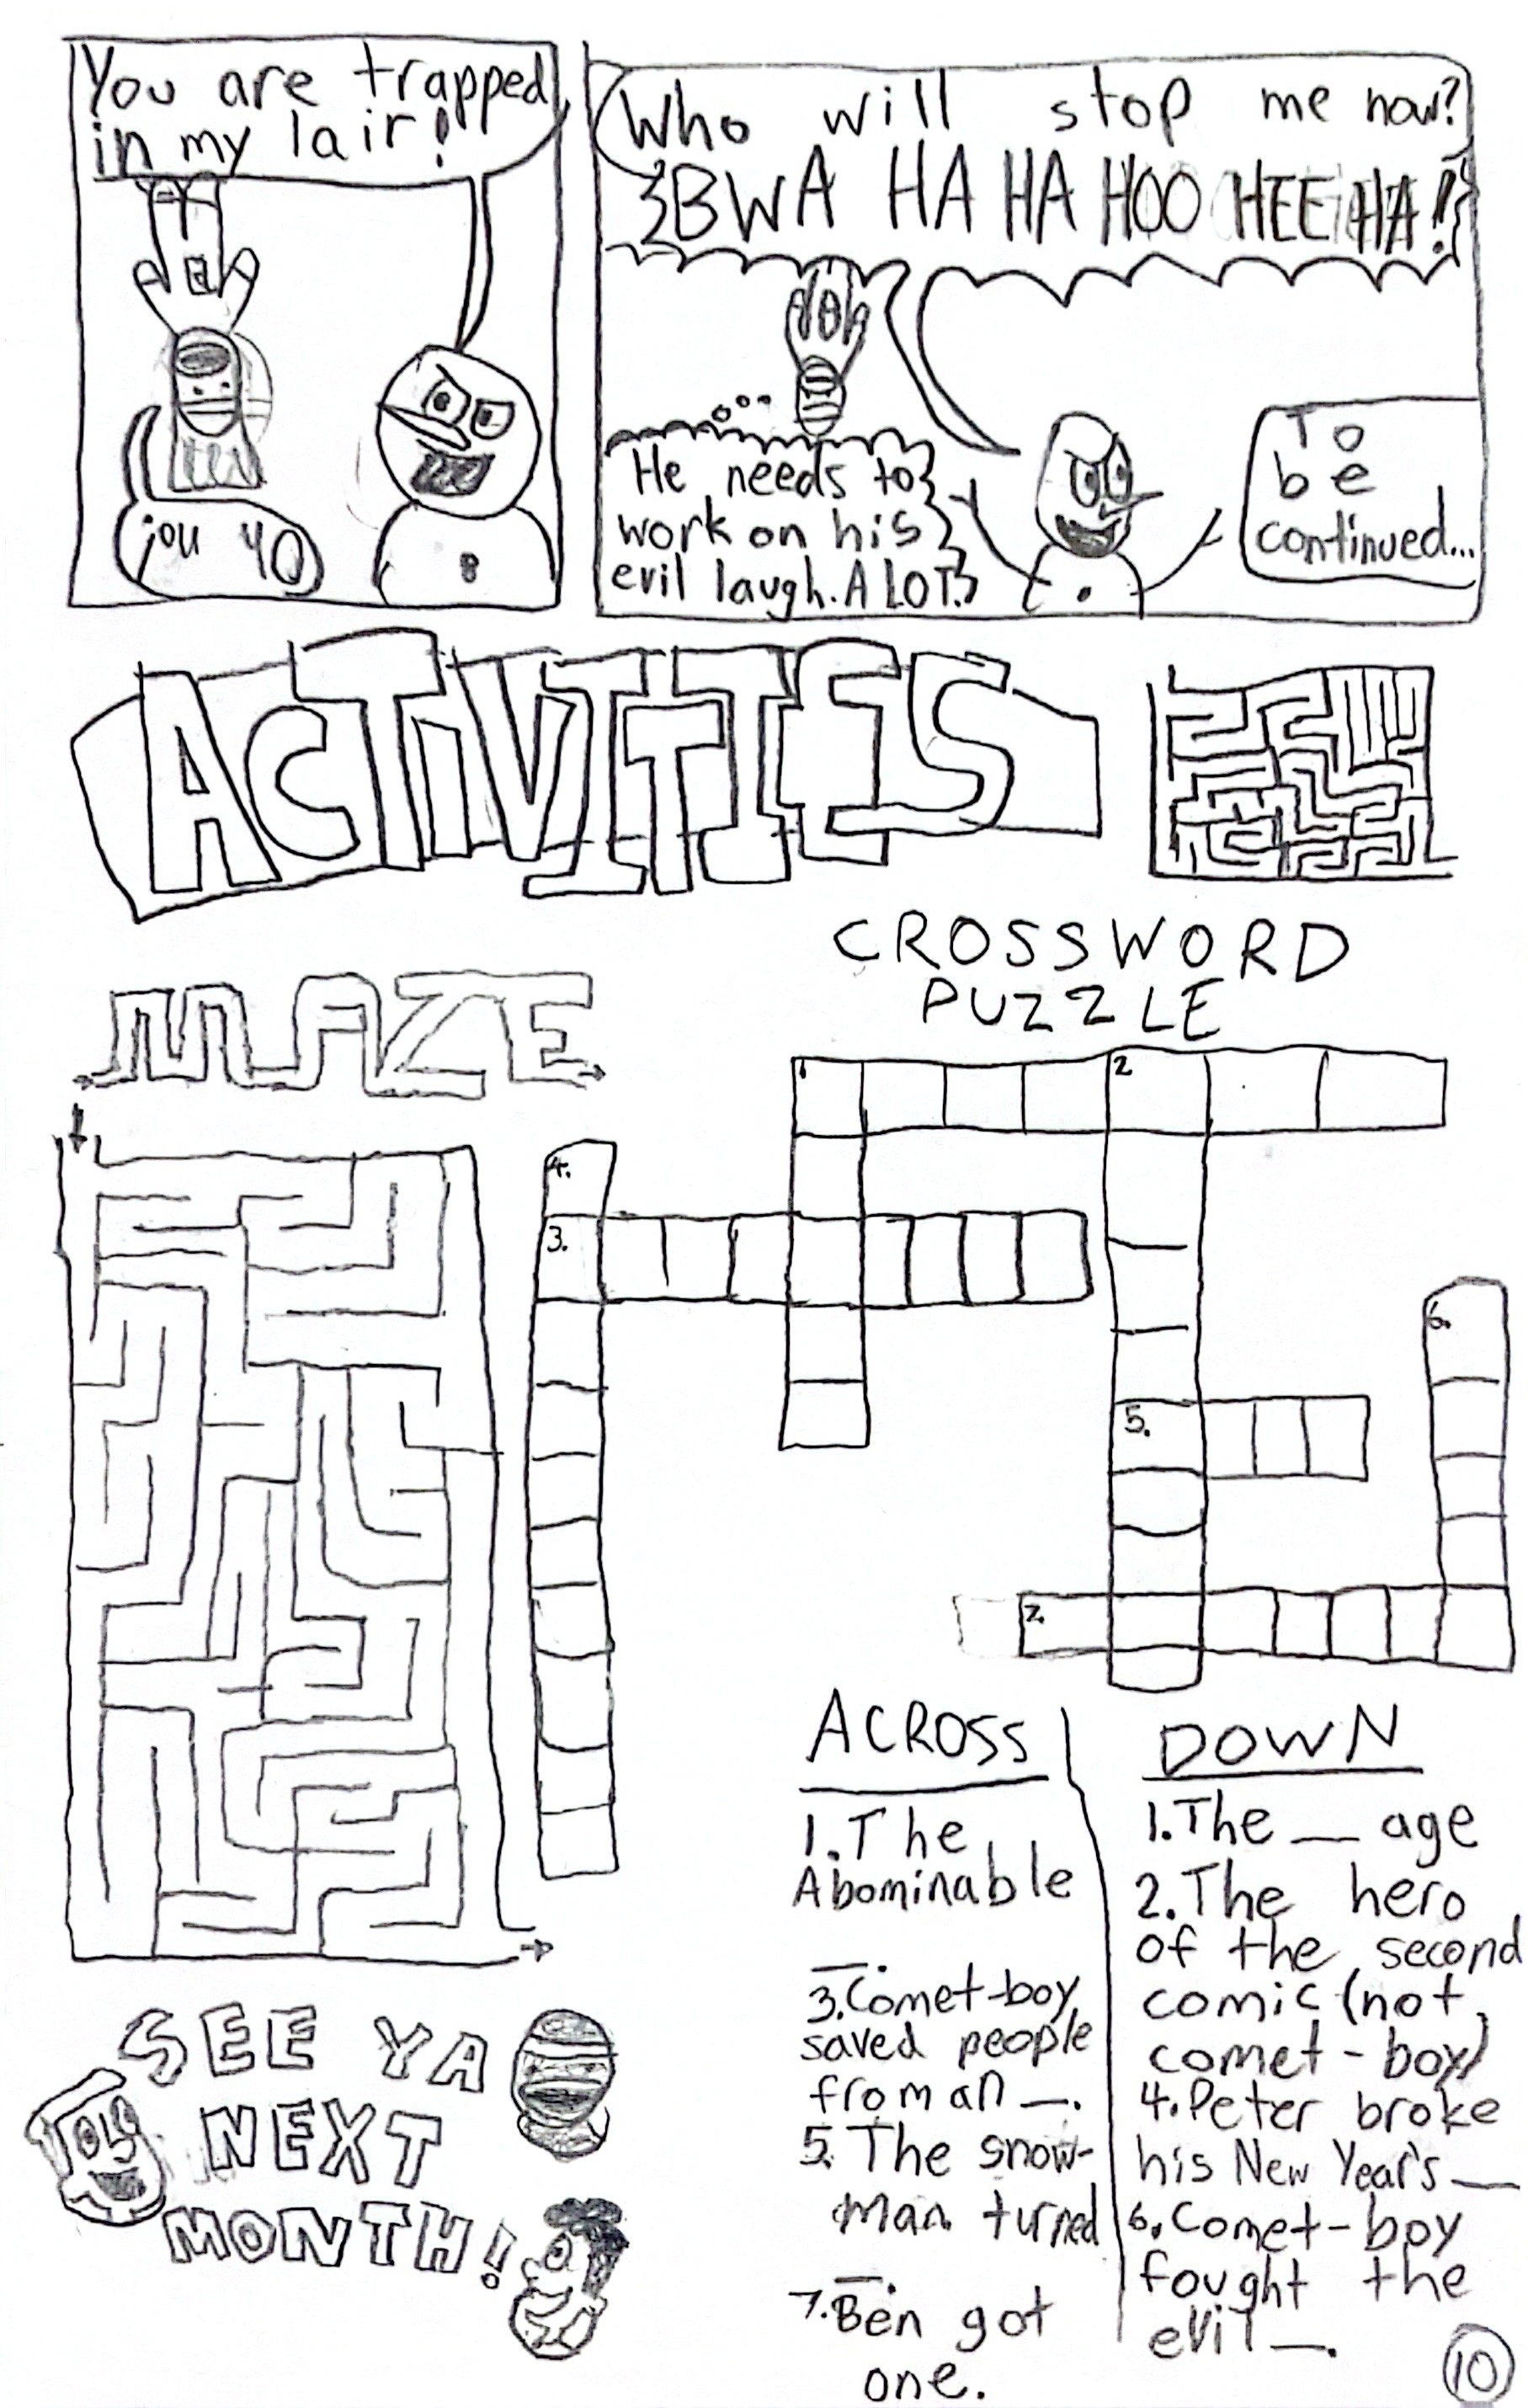 You are trapped
in my lair!
you yo
Who will stop me now?
BWA HA HA HOO HEE HA!
He needs to
work on his
evil laugh. A LOT.
To
be
continued...
ACTIVITIES
MAZE
CROSSWORD
PUZZLE
1.
2.
4.
3.
6.
5.
7.
ACROSS
1. The
Abominable
__.
3. Comet-boy
saved people
from an __.
5. The snow-
man turned
__.
7. Ben got
one.
DOWN
1. The __ age
2. The hero
of the second
comic (not
comet-boy)
4. Peter broke
his New Year's __
6. Comet-boy
fought the
evil __.
SEE YA
NEXT
MONTH!
10